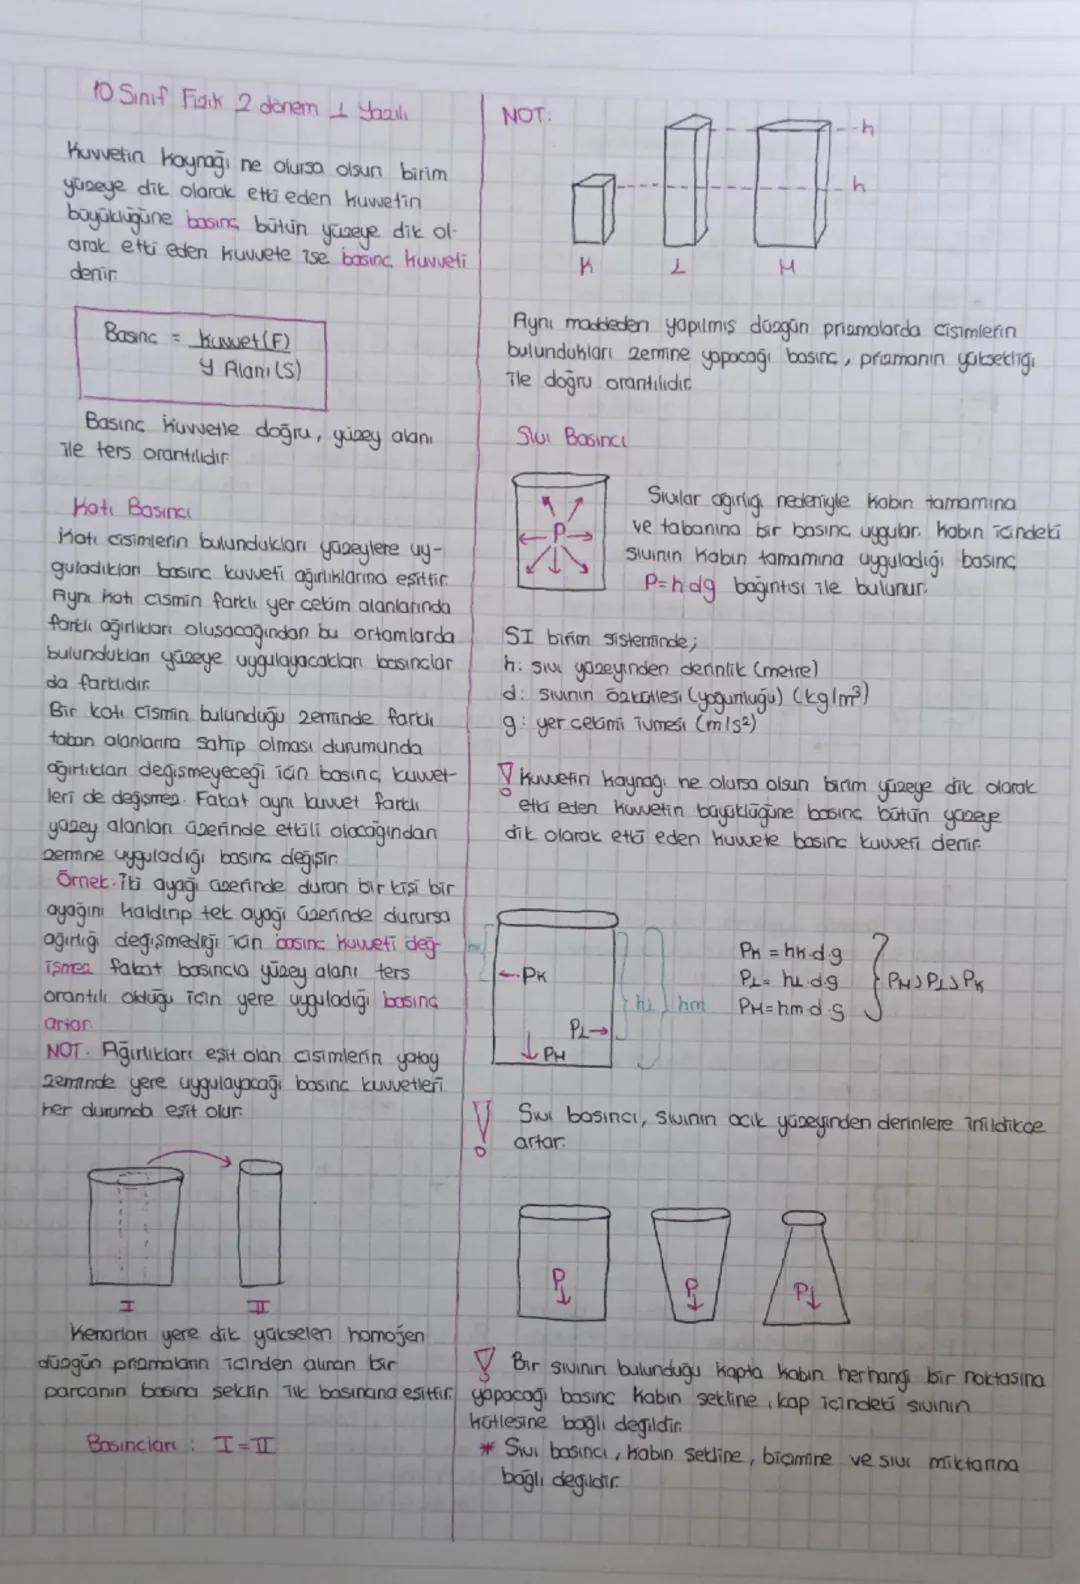 10 Sınıf Fizik 2 dönem 1 Yazılı
Kuvvetin kaynağı ne olursa olsun birim
yüzeye dik olarak etki eden kuvvetin
büyüklüğüne basınç, bütün yüzeye dik ol-
arak etki eden kuvvete ise basınç kuvveti
denir.
Basınç = Kuvvet (F)
y Alanı (S)
Basınç kuvvetle doğru, yüzey alanı
ile ters orantılıdır.
Katı Basıncı
Katı cisimlerin bulundukları yüzeylere uy-
guladıkları basınç kuvveti ağırlıklarına eşittir.
Aynı katı cismin farklı yer çekim alanlarında
farklı ağırlıkları oluşacağından bu ortamlarda
bulundukları yüzeye uygulayacakları basınçlar
da farklıdır.
Bir katı cismin bulunduğu zeminde farklı
taban alanlarına sahip olması durumunda
ağırlıkları değişmeyeceği için basınç kuvvet-
leri de değişmez. Fakat aynı kuvvet farklı
yüzey alanları üzerinde etkili olacağından
zemine uyguladığı basınç değişir.
Örnek: İki ayağı üzerinde duran bir kişi bir
ayağını kaldırıp tek ayağı üzerinde durursa
ağırlığı değişmediği için basınç kuvveti değ-
işmez fakat basıncla yüzey alanı ters
orantılı olduğu için yere uyguladığı basınç
artar.
NOT: Ağırlıkları eşit olan cisimlerin yatay
zeminde yere uygulayacağı basınç kuvvetleri
her durumda eşit olur.
I II
Kenarları yere dik yükselen homojen
düzgün prizmaların içinden alınan bir
parçanın basıncı şeklin ilk basıncına eşittir.
Basınçları : I = II
NOT:
h
h
K L M
Aynı maddeden yapılmış düzgün prizmalarda cisimlerin
bulundukları zemine yapacağı basınç, prizmanın yüksekliği
ile doğru orantılıdır.
Sıvı Basıncı
P
Sıvılar ağırlığı nedeniyle kabın tamamına
ve tabanına bir basınç uygular. Kabın içindeki
sıvının kabın tamamına uyguladığı basınç
P=hdg bağıntısı ile bulunur.
SI birim sisteminde;
h: sıvı yüzeyinden derinlik (metre)
d: sıvının özkütlesi (yoğunluğu) (kg/m³)
g: yer çekimi ivmesi (m/s²)
! Kuvvetin kaynağı ne olursa olsun birim yüzeye dik olarak
etki eden kuvvetin büyüklüğüne basınç bütün yüzeye
dik olarak etki eden kuvvete basınç kuvveti denir.
hk
PK
hL hm
PL
PM
PK = hk.d.g
PL = hL.d.g
PM = hm.d.g
PM > PL > PK
! Sıvı basıncı, sıvının açık yüzeyinden derinlere inildikçe
artar.
P P P
! Bir sıvının bulunduğu kapta kabın herhangi bir noktasına
yapacağı basınç kabın şekline, kap içindeki sıvının
kütlesine bağlı değildir.
* Sıvı basıncı, kabın şekline, biçimine ve sıvı miktarına
bağlı değildir.